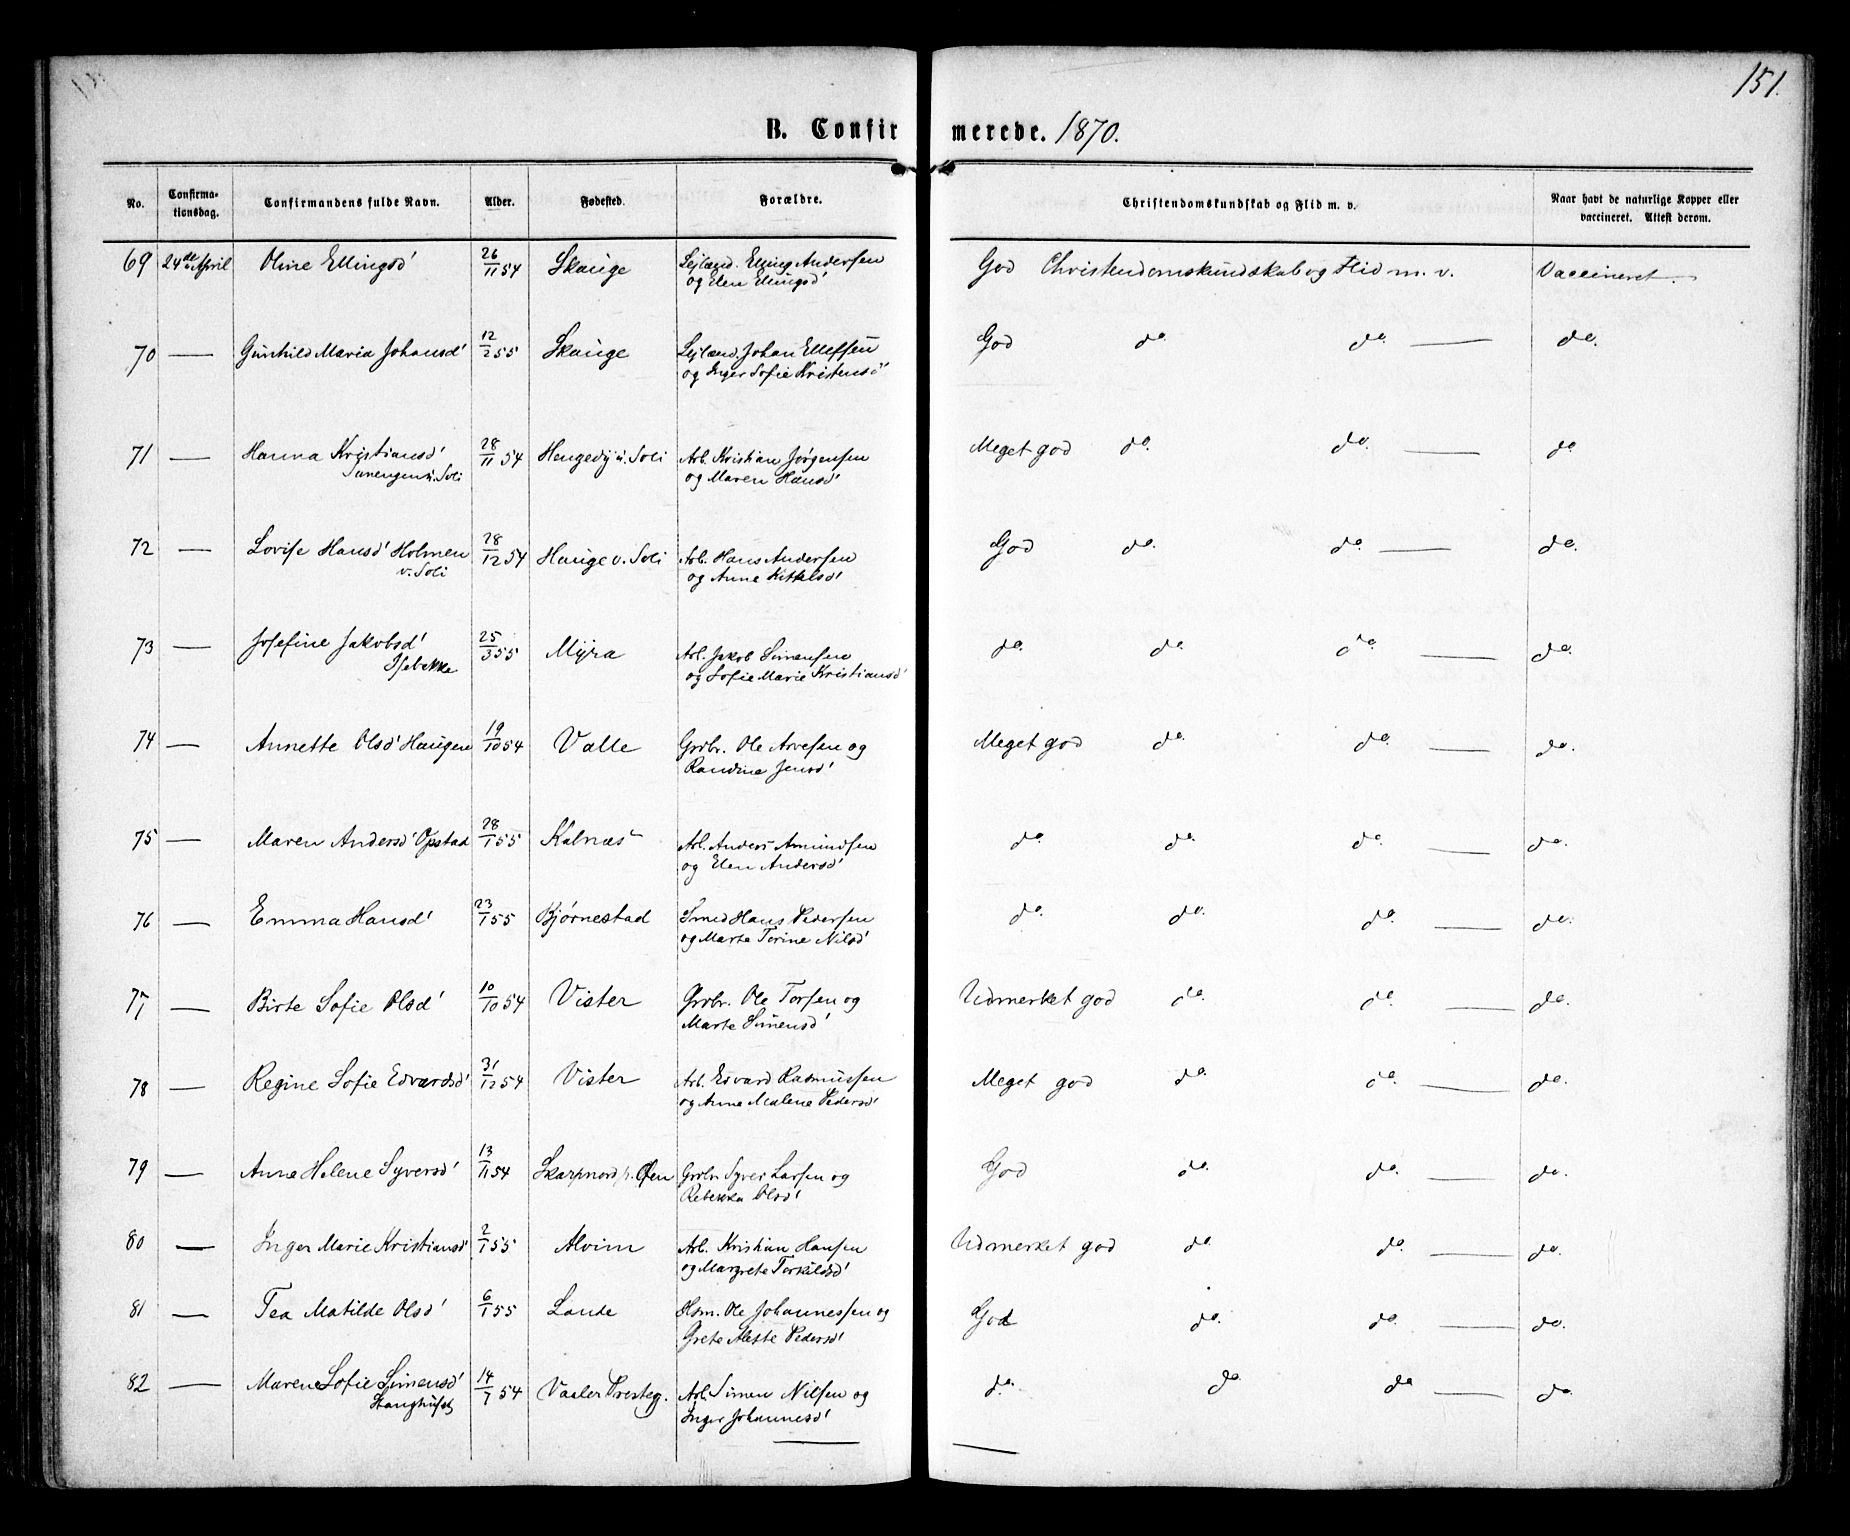 151.
B. Confirmerede. 1870.
No. Confirmationsdag. Confirmandens fulde Navn. Alder. Fødested. Forældre. Christendomskundskab og Flid m. v. Naar havt de naturlige Kopper eller vaccineret. Attest derom.
69 24de April Oline Ellingsd' 26/11 54 Skauge Lejlænd. Elling Andersen God Christendomskundskab og Flid m. v. Vaccineret.
og Elen Ellingsd'
70 — Gunhild Maria Johansd' 12/2 55 Skauge Lejlænd. Johan Ellefsen God do. do. — do.
og Inger Sofie Kristensd'
71 — Hanna Kristiansd' 28/11 54 v. Soli Arb. Kristian Jørgensen Meget god do. do. — do
v. Soli og Maren Hansd'
72 — Lovise Hansd' Holmen 28/12 54 Hauge v. Soli Arb. Hans Andersen God do. do. — do.
v. Soli og Anne Kittelsd'
73 — Josefine Jakobsd' 25/3 55 Myra Arb. Jakob Simensen do. do. do. — do.
Isebakke og Sofie Marie Kristiansd'
74 — Annette Olsd' Haugen 19/10 54 Valle Grdbr. Ole Arvesen og Meget god do. do. — do.
Randine Jensd'
75 — Maren Andersd' Opstad 28/1 55 Kalnæs Arb. Anders Amundsen do. do. do. — do.
og Elen Andersd'
76 — Emma Hansd' 23/1 55 Bjørnestad Smed Hans Pedersen do. do. do. — do.
og Marte Torine Nilsd'
77 — Birte Sofie Olsd' 10/10 54 Vister Grdbr. Ole Torsen og Udmerket god do. do. — do.
Marte Simensd'
78 — Regine Sofie Edvardsd' 31/12 54 Vister Arb. Edvard Rasmussen Meget god do. do. — do.
og Anne Malene Pedersd'
79 — Anne Helene Syversd' 13/11 54 Skarpnord p. Øen Grdbr. Syver Larsen og God do. do. — do.
Rebekka Olsd'
80 — Inger Marie Kristiansd' 2/1 55 Alvim Arb. Kristian Hansen Udmerket god do. do. — do.
og Margrete Torkildsd'
81 — Tea Matilde Olsd' 6/1 55 Lande Hsm. Ole Johannessen og God do. do. — do.
Grete Aleste Pedersd'
82 — Maren Sofie Simensd' 14/7 54 Vaaler Presteg. Arb. Simen Nilsen og do. do. do — do.
Stanghuset Inger Johannesd'